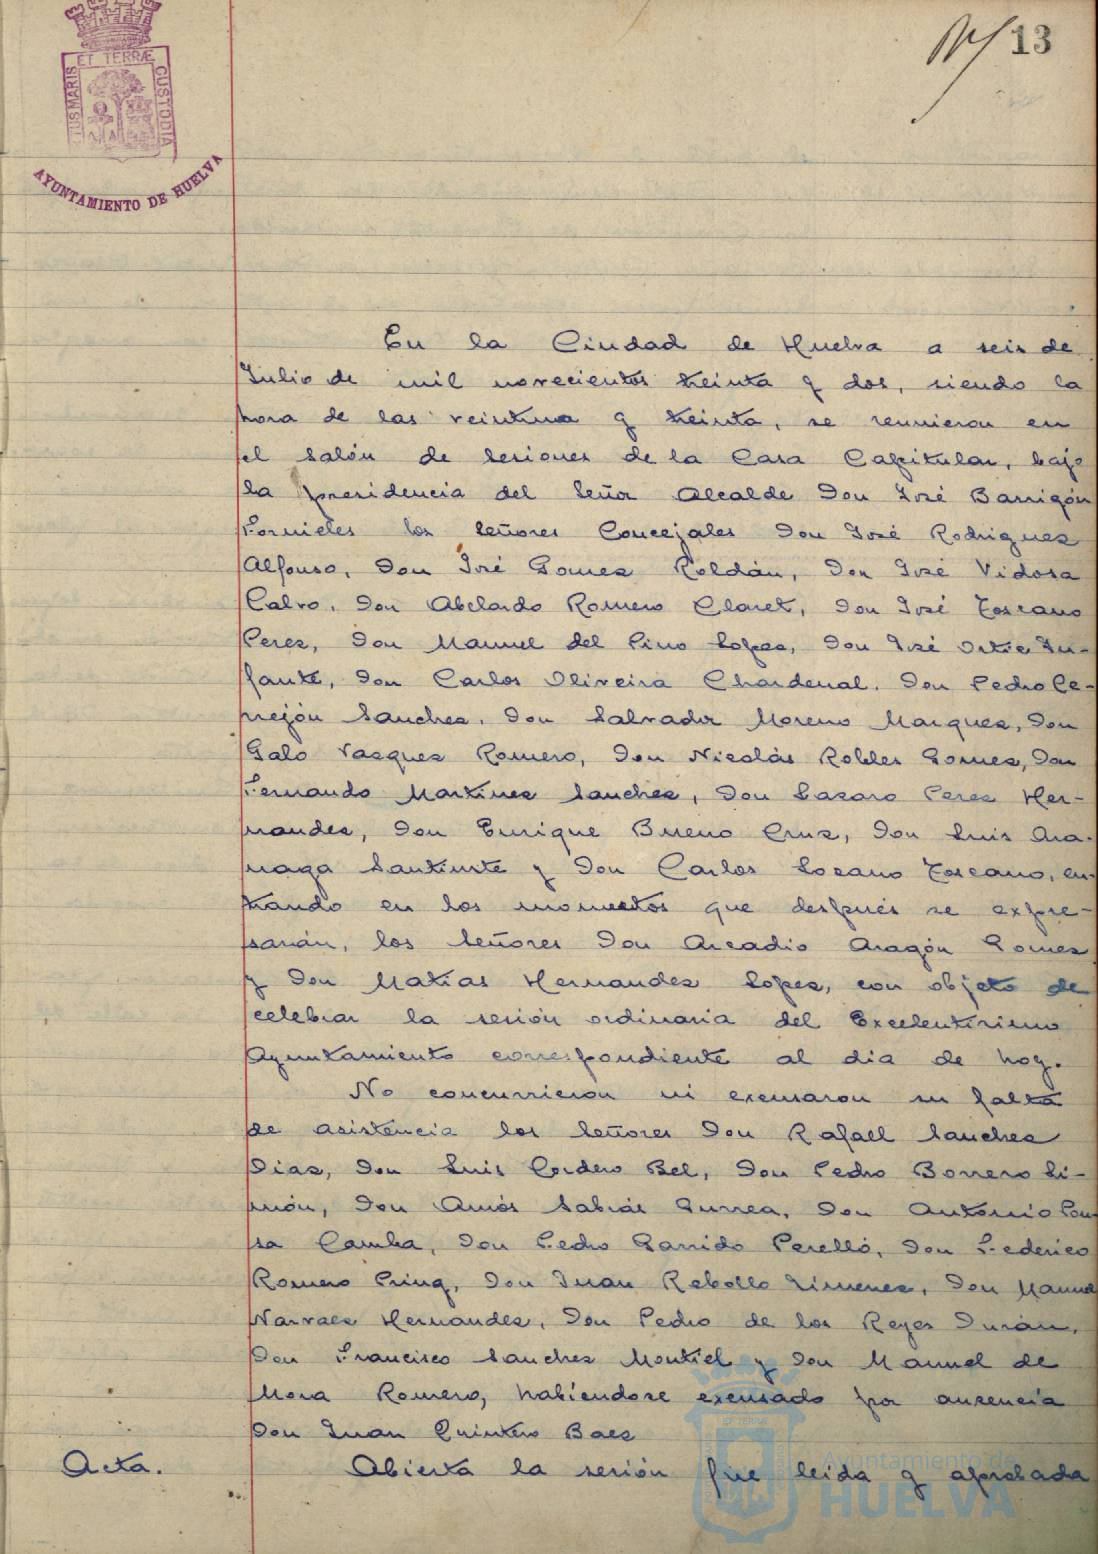 13
ET TERRÆ
CUSTODIA
AYUNTAMIENTO DE HUELVA
En la Ciudad de Huelva a seis de
Julio de mil novecientos treinta y dos, siendo la
hora de las veintiuna y treinta, se reunieron en
el salón de sesiones de la Casa Capitular, bajo
la presidencia del Señor Alcalde Don José Barrigón
Fornieles los señores Concejales Don José Rodriguez
Alfonso, Don José Gomez Roldán, Don José Vidosa
Calvo, Don Abelardo Romero Claret, Don José Toscano
Perez, Don Manuel del Pino Lopez, Don José Ortiz In-
fante, Don Carlos Oliveira Chardenal, Don Pedro Ce-
rrejón Sanchez, Don Salvador Moreno Marquez, Don
Galo Vazquez Romero, Don Nicolás Robles Gomez, Don
Fernando Martinez Sanchez, Don Lazaro Perez Her-
nandez, Don Enrique Bueno Cruz, Don Luis
y Don Carlos Lozano Toscano, en-
trando en los momentos que después se expre-
sarán, los señores Don Arcadio Aragón Gomez
y Don Matías Hernandez Lopez, con objeto de
celebrar la sesión ordinaria del Excelentísimo
Ayuntamiento correspondiente al dia de hoy.
No concurrieron ni excusaron su falta
de asistencia los señores Don Rafael Sanchez
Diaz, Don Luis Cordero Bel, Don Pedro Borrero Li-
món, Don Amós Sabrás Gurrea, Don Antonio Pou-
sa Camba, Don Pedro Garrido Perelló, Don Federico
Romero Don Juan Rebollo Jimenez, Don Manuel
Narvaez Hernandez, Don Pedro de los Reyes Durán,
Don Francisco Sanchez Montiel y Don Manuel de
Mora Romero, habiendose excusado por ausencia
Don Juan Quintero Baez
Acta. Abierta la sesión fue leida y aprobada
Ayuntamiento de
HUELVA